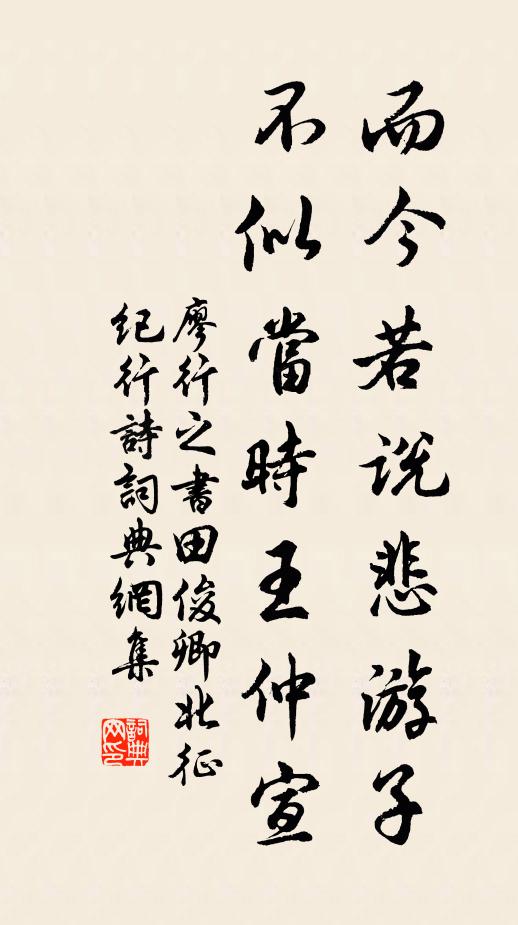 而今若说悲游子
不似當時王仲宣
廖行之書田俊卿北征
纪行詩詞典網集
詞典
网印